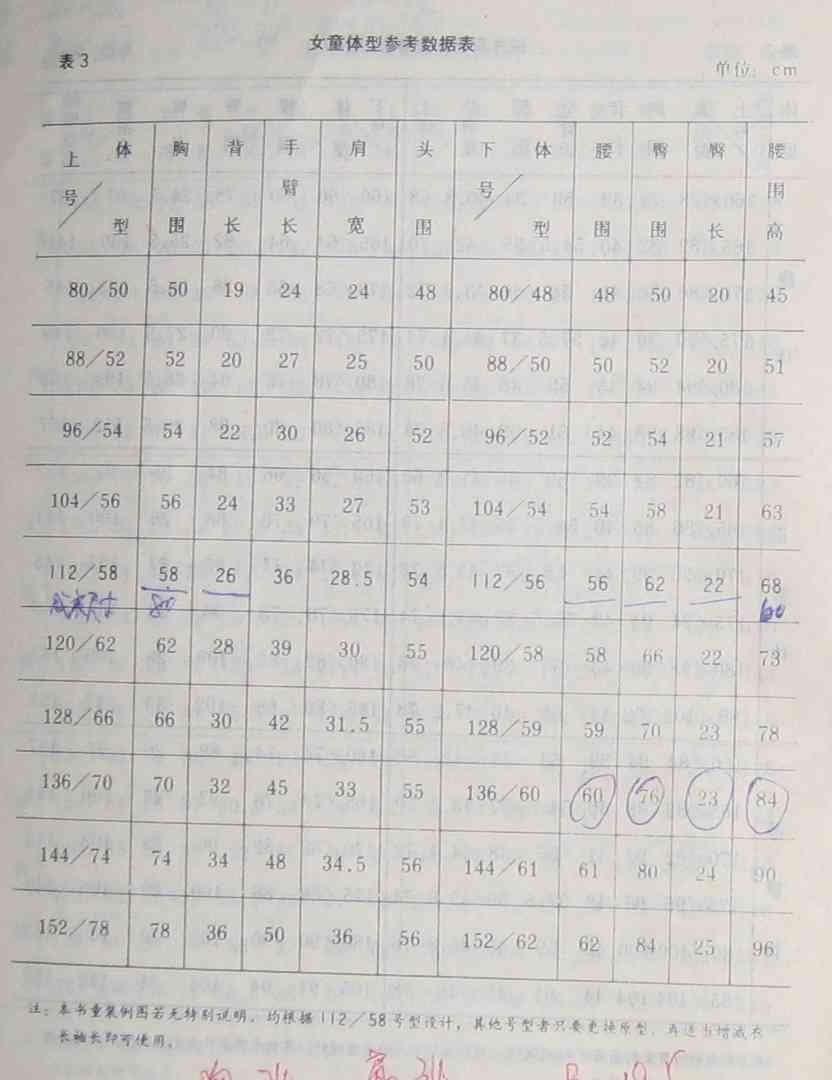 女童体型参考数据表
表3
单位：cm
上号／体型 胸围 背长 手臂长 肩宽 头围 下号／体型 腰围 臀围 臀长 腰围高
80／50 50 19 24 24 48 80／48 48 50 20 45
88／52 52 20 27 25 50 88／50 50 52 20 51
96／54 54 22 30 26 52 96／52 52 54 21 57
104／56 56 24 33 27 53 104／54 54 58 21 63
112／58 58 26 36 28.5 54 112／56 56 62 22 68
成衣尺寸 80 60
120／62 62 28 39 30 55 120／58 58 66 22 73
128／66 66 30 42 31.5 55 128／59 59 70 23 78
136／70 70 32 45 33 55 136／60 60 76 23 84
144／74 74 34 48 34.5 56 144／61 61 80 24 90
152／78 78 36 50 36 56 152／62 62 84 25 96
注：本书童装例图若无特别说明，均根据112／58号型设计，其他号型者只要更换原型，再适当增减衣
长袖长即可使用。